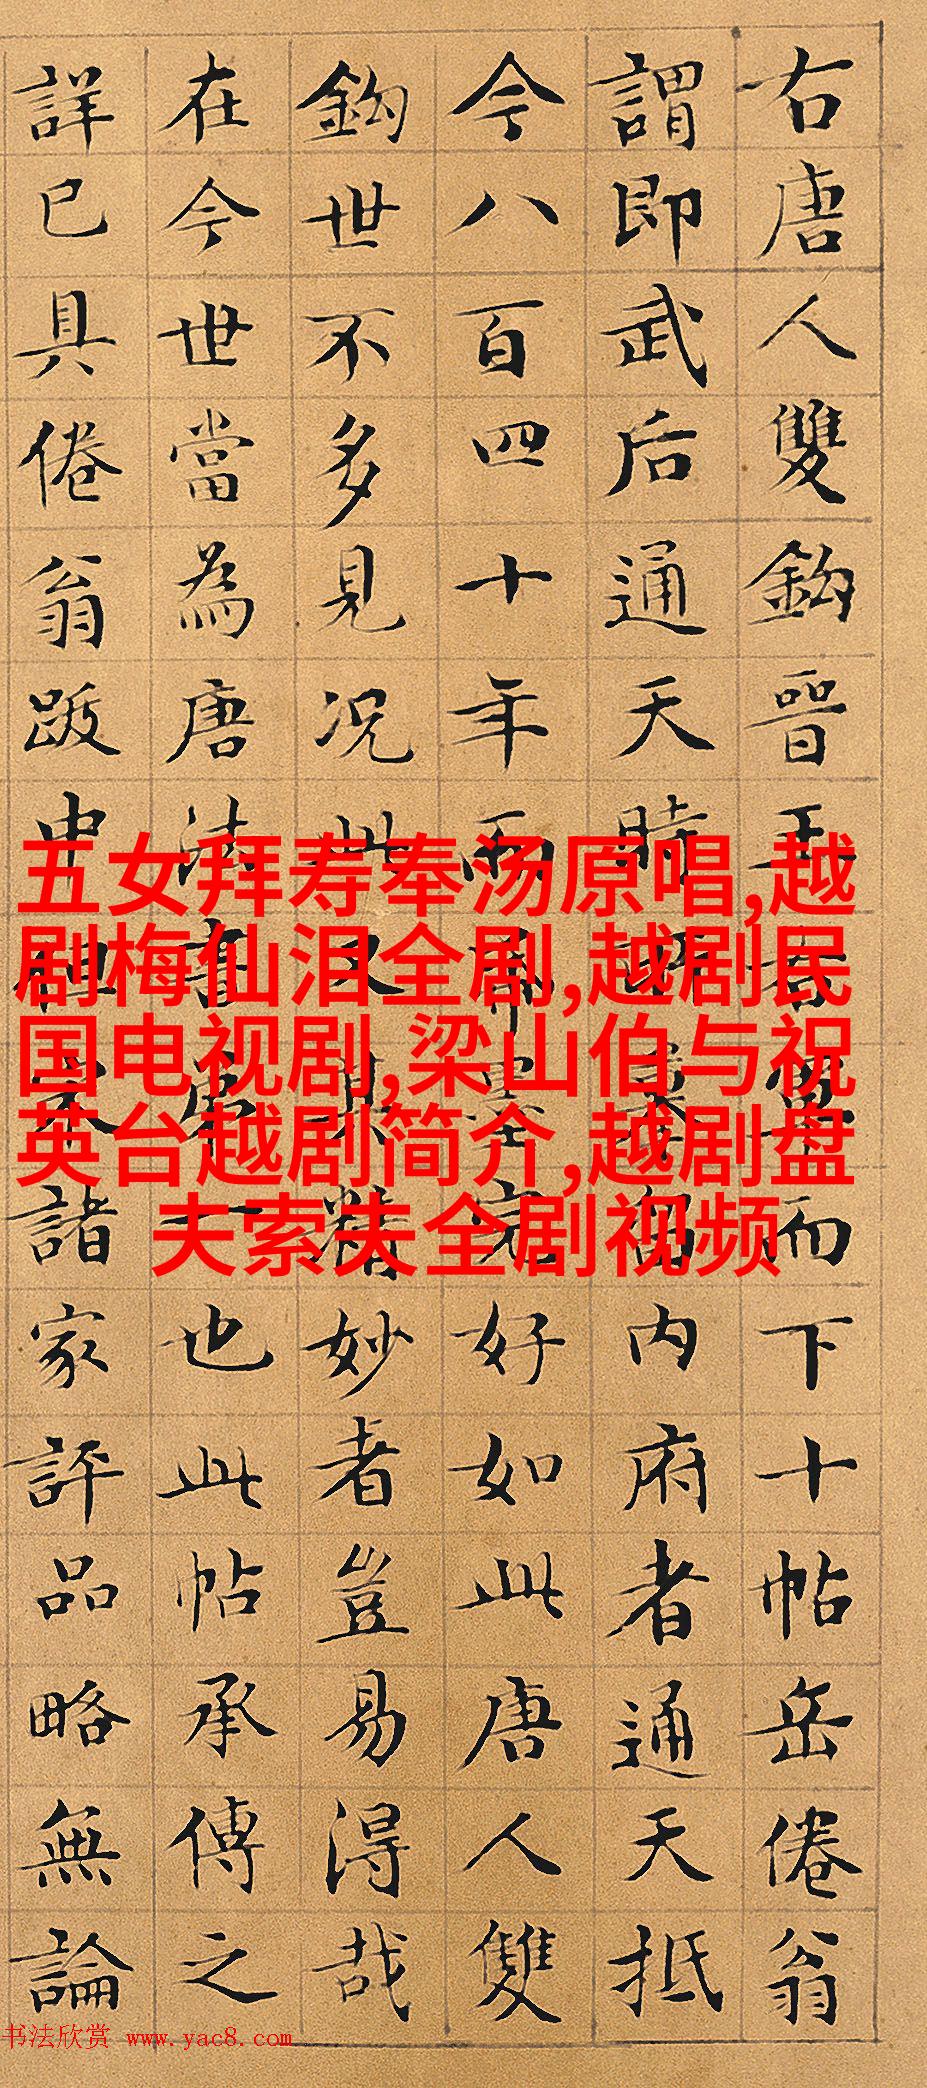 右唐人雙鈎晉王右軍而下十帖岳倦翁
謂即武后通天時所摹留内府者通天抵
今八百四十年而帋墨完好如此唐人雙
鈎世不多見况此又其精妙者豈易得哉
在今世當為唐法書第一也此帖承傳之
詳已具倦翁跋中但宋諸家評品略無論
五女拜寿奉汤原唱,越
剧梅仙泪全剧,越剧民
国电视剧,梁山伯与祝
英台越剧简介,越剧盘
夫索夫全剧视频
书法欣赏 www.yac8.com